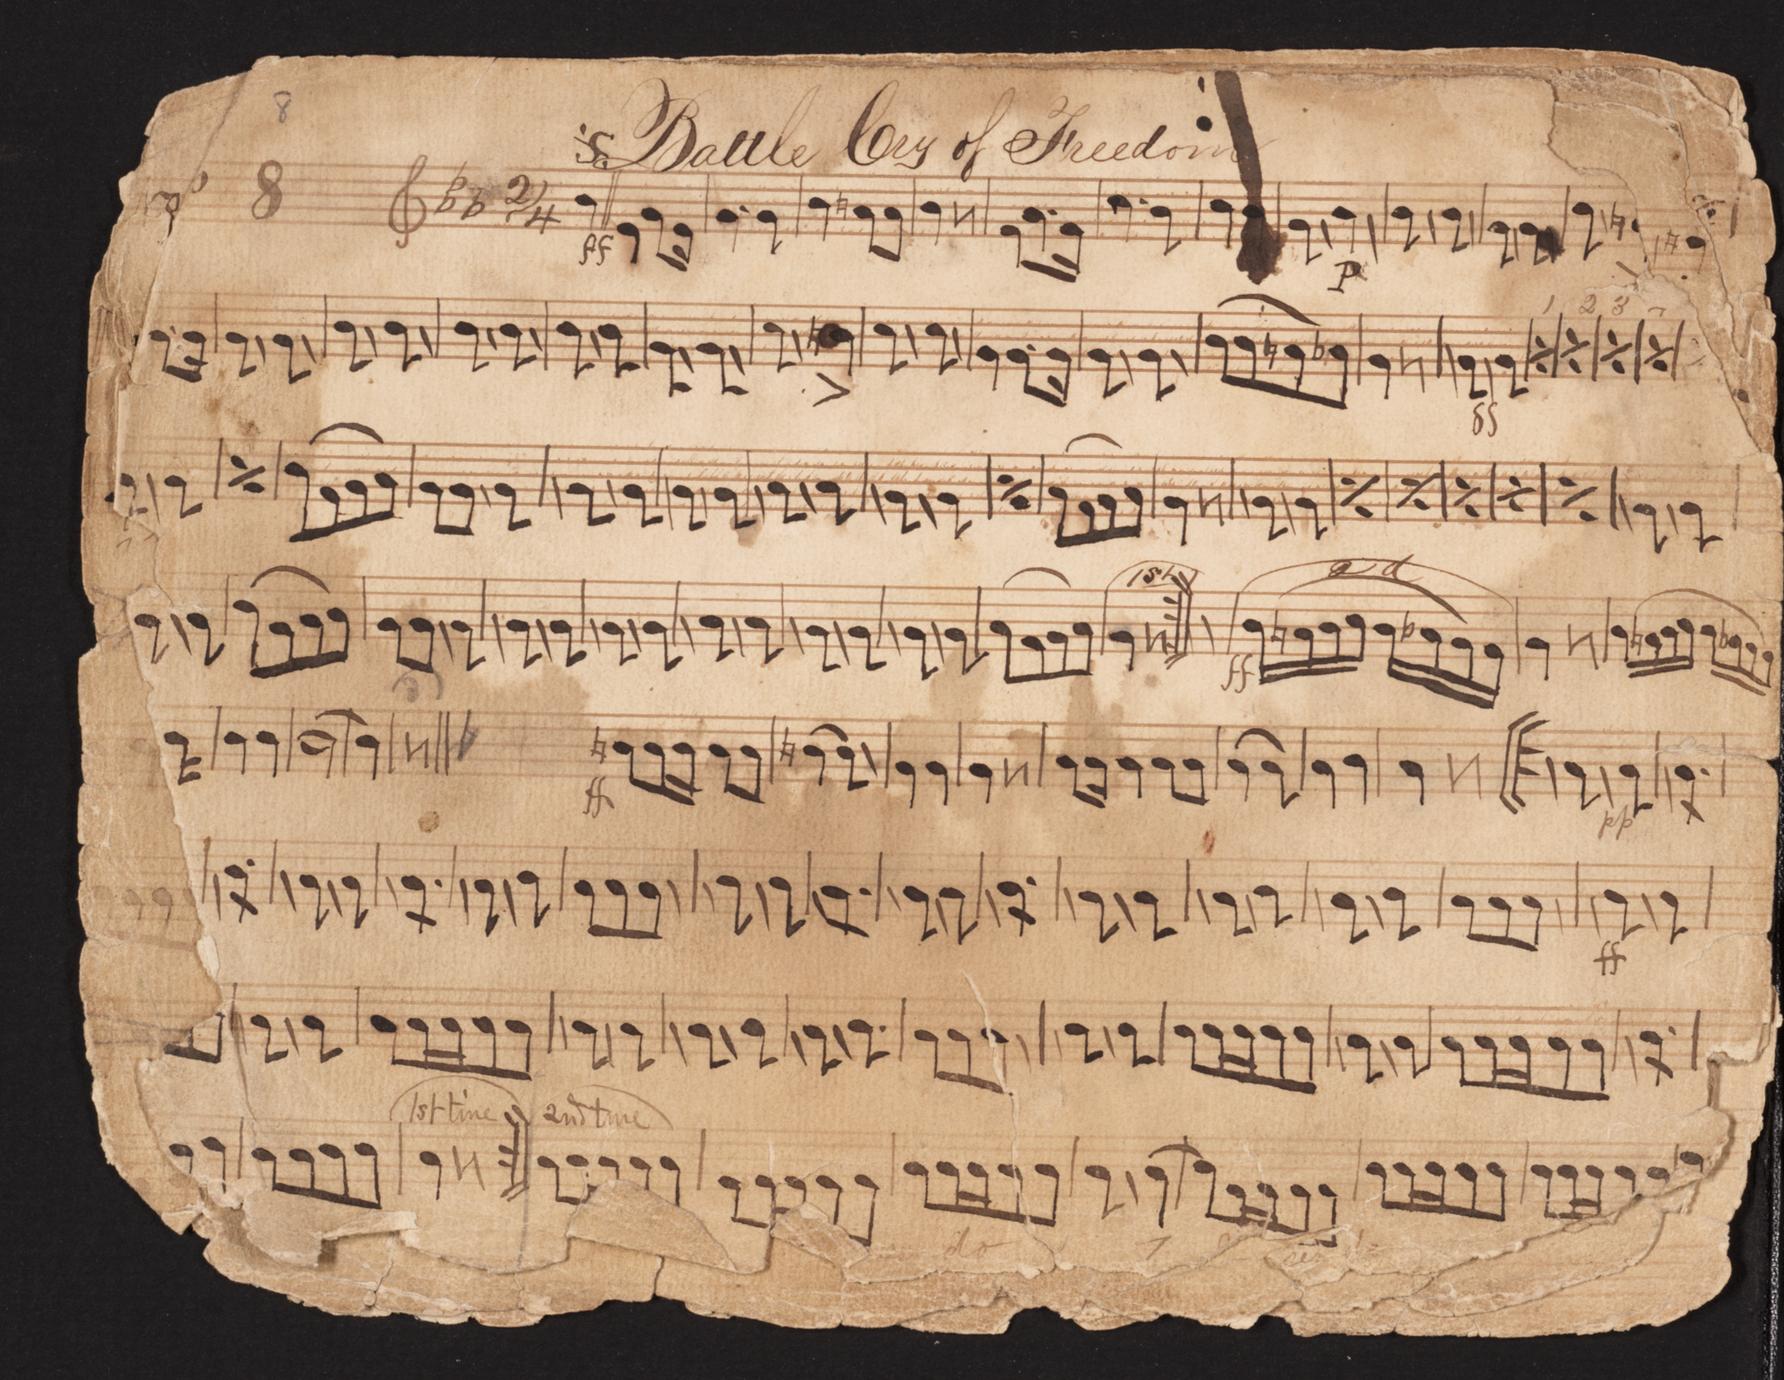 8
's Battle Cry of Freedom
No 8 2/4
ff p
1 2 3
ff
1st 2d
ff
ff pp
ff
1st time 2nd time
do